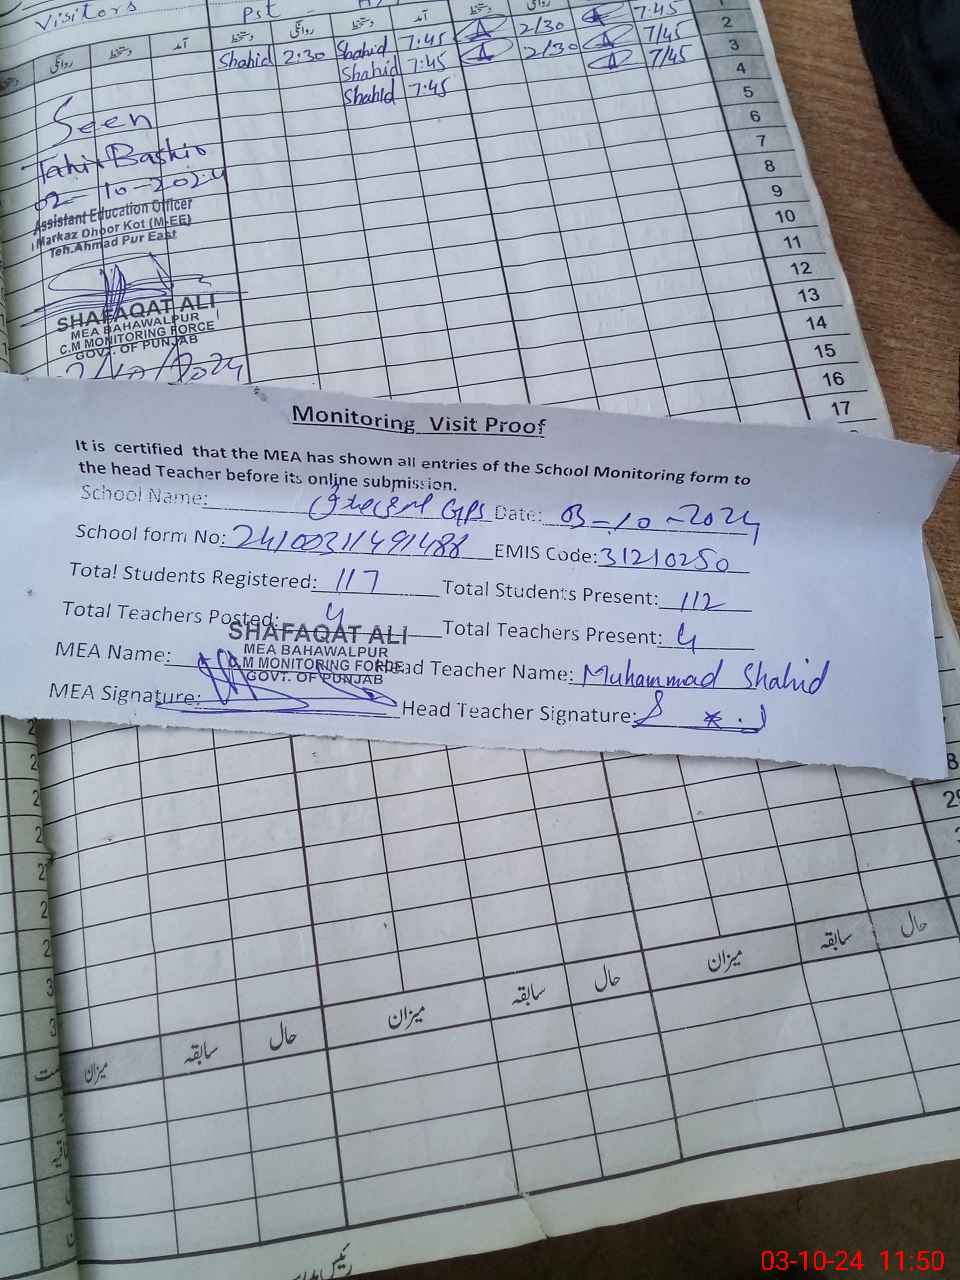 Visitors
Pst
آمد
دستخط
روانگی
دستخط
آمد
دستخط
روانگی
دستخط
روانگی
Shahid 2:30 Shahid 7:45 2/30 7:45
Shahid 7:45 2/30 7/45
Shahid 7:45 7/45
2
3
4
5
6
7
8
9
10
11
12
13
14
15
16
17
Seen
Tahir Bashir
02-10-2024
Assistant Education Officer
Markaz Dhoor Kot (M-EE)
Teh.Ahmad Pur East
SHAFAQAT ALI
MEA BAHAWALPUR
C.M MONITORING FORCE
GOVT. OF PUNJAB
2/10/2024
Monitoring Visit Proof
It is certified that the MEA has shown all entries of the School Monitoring form to
the head Teacher before its online submission.
School Name: GPS Date: 03-10-2024
School form No: 24100311491488 EMIS Code: 31210250
Total Students Registered: 117 Total Students Present: 112
Total Teachers Posted: 4 Total Teachers Present: 4
SHAFAQAT ALI
MEA BAHAWALPUR
C.M MONITORING FORCE
GOVT. OF PUNJAB
MEA Name: Head Teacher Name: Muhammad Shahid
MEA Signature: Head Teacher Signature:
29
حال سابقہ میزان حال سابقہ میزان حال سابقہ میزان
03-10-24 11:50